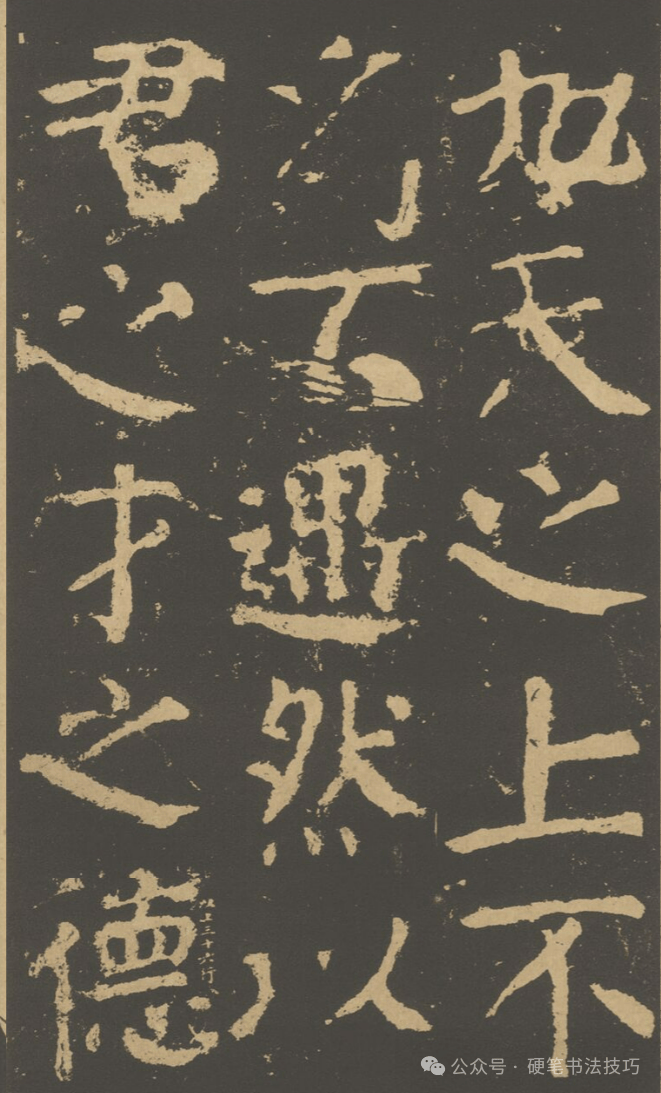 加民之上不
為不遇然以
君之才之德
上三十六行
公众号·硬笔书法技巧